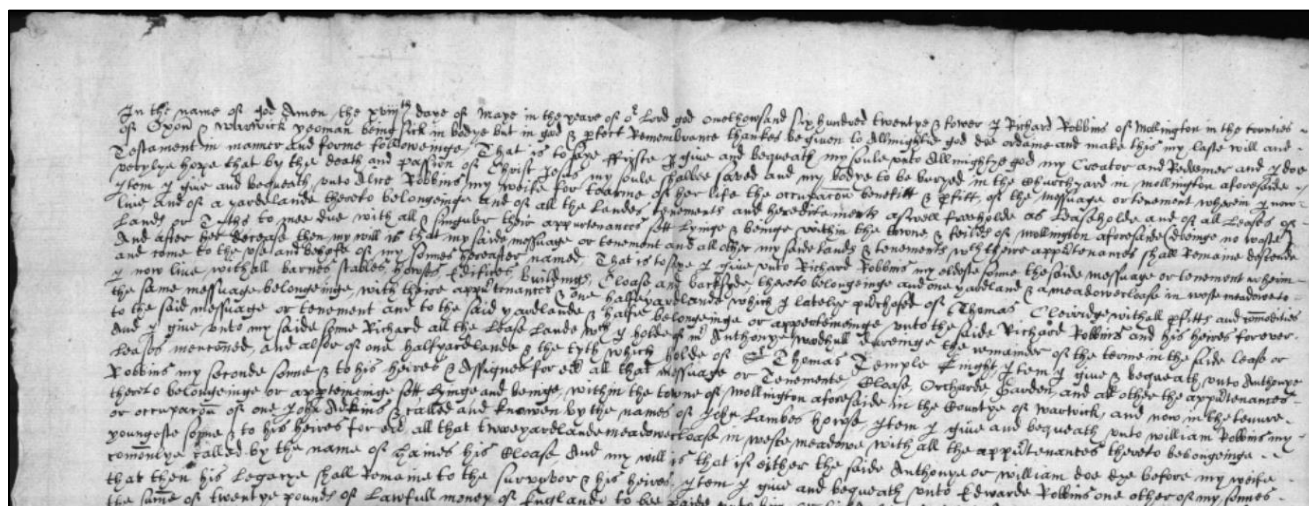 In the name of god Amen the xviijth daye of Maye in the yeare of or Lord god onethousand six hundred twentye & fower I Richard Robbins of Mollington in the counties
of Oxon & Warwick yeoman being sick in bodye but in god & pfect Remembrance thankes be given to Allmightie god doe ordaine and make this my laste will and
Testament in manner and forme followeinge, That is to saye ffirste I give and bequeath my soule unto Allmightye god my Creator and Redemer and I doe
verylye hope that by the death and passion of Christ Jesus my soule shallbe saved and my bodye to be buryed in the Churchyard in Mollington aforesaide
Item I give and bequeath unto Alice Robbins my weife for tearme of her life the occupacon benefitt & pfitt of the messuage or tenement wherein I now
live and of a yardelande thereto belongeinge and of all the landes tenements and hereditaments aswell freeholde as Leasholde and of all Leases of
Lands or Tyths to mee due with all & singuler their appurtenances sett lyinge & beinge within the towne & feilds of Mollington aforesaide doeinge no waste
And after her decease then my will is that my saide messuage or tenement and all other my saide lands & tenements with theire apputenances shall Remaine descende
and come to the use and behofe of my sonnes hereafter named That is to saye I give unto Richard Robbins my eldeste sonne the saide messuage or tenement wherein
I now live withall barnes stables howses Edifices buildings, Cloase and backside thereto belongeinge and one yardland & a meadowe cloase in weste meadowe to
the same messuage belongeinge, with theire apputenances & one halfe yardlande which I latelye purchased of Thomas Cleridge withall pfitts and comodities
to the said messuage or tenement and to the said yardlande & halfe belongeinge or apperteineinge unto the saide Richard Robbins and his heires forever
And I give unto my saide sonne Richard all the Lease Lande wch I holde of mr Anthonye Wodhull dureinge the remainder of the terme in the saide lease or
Leases mentioned, and alsoe of one halfyardlande & the tyth which holde of Sr Thomas Temple Knight Item I give & bequeath unto Anthonye
Robbins my seconde sonne & to his heires & Assignes for evr all that messuage or Tenemente, Cloase, Orcharde Garden, and all other the apputenances
thereto belongeinge or apperteininge sett lyinge and beinge within the towne of Mollington aforesaide in the Countye of Warwick, and now in the tenure
or occupacon of one John Adkins & called and knowen by the names of John Lambes howse, Item I give and bequeath unto William Robbins my
youngeste sonne & to his heires for evr all that twoeyardlande meadowe cloase in weste meadowe with all the apputenances thereto belongeinge
comonlye called by the name of Haines his Cloase And my will is that if either the saide Anthonye or William doe dye before my weife
that then his Legacye shall Remaine to the survyvor & his heires, Item I give and bequeath unto Edwarde Robbins one other of my sonnes
the sume of twentye pounds of Lawfull money of Englande to be paide